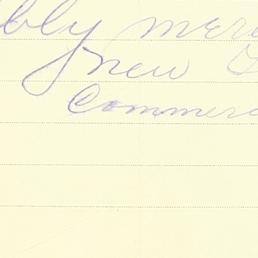 bly mer
new
Commer